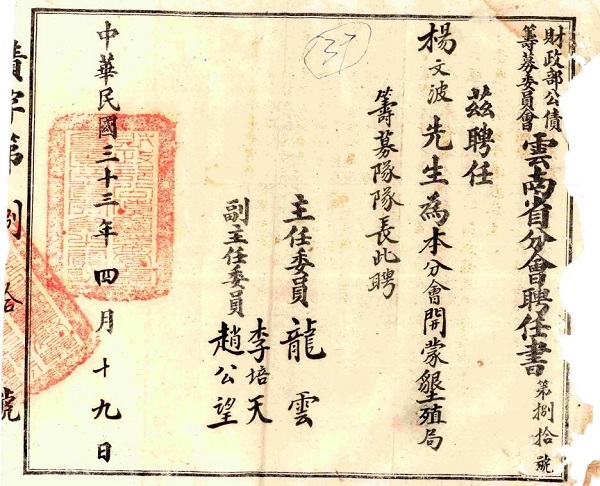 財政部公債
籌募委員會
雲南省分會聘任書
第捌拾號
茲聘任
楊文波先生為本分會開蒙墾殖局
籌募隊隊長此聘
主任委員龍雲
副主任委員李培天
趙公望
中華民國三十三年四月十九日
字第捌拾號
37